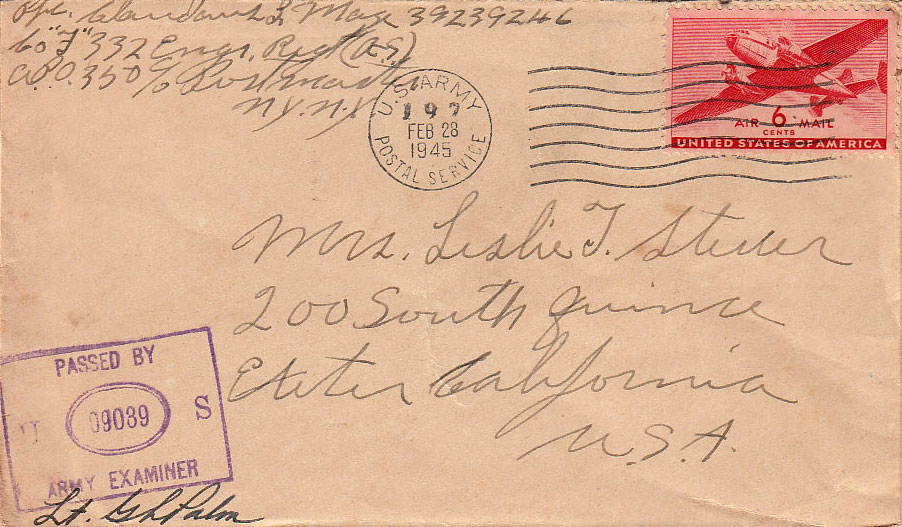 Maze 39239246
Co "F" 332 Engr. Regt (A.S.)
A.P.O. 350 c/o Postmaster
N.Y. N.Y.
U.S. ARMY
197
FEB 28
1945
POSTAL SERVICE
AIR 6 MAIL
CENTS
UNITED STATES OF AMERICA
Mrs. Leslie T. Studer
200 South Quince
Exeter California
U.S.A.
PASSED BY
U 09039 S
ARMY EXAMINER
Lt. G L Palm